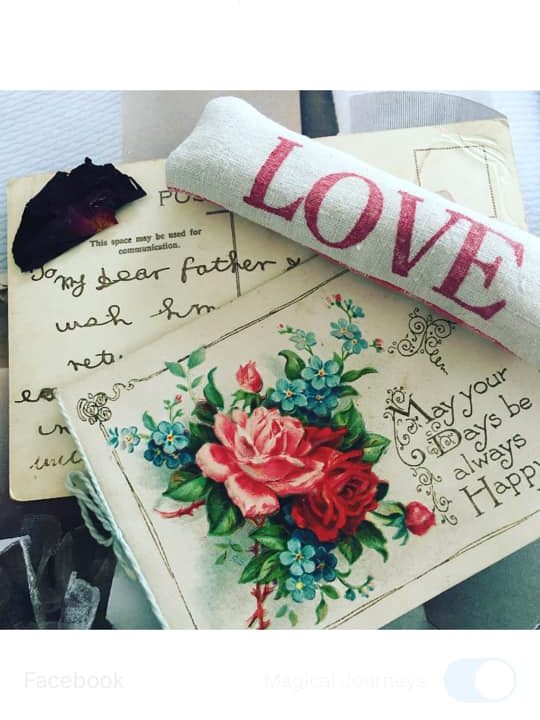 LOVE
POS
This space may be used for
communication.
To My Dear father
wish him
May your
Days be
always
Happy
Facebook
Magical Journeys